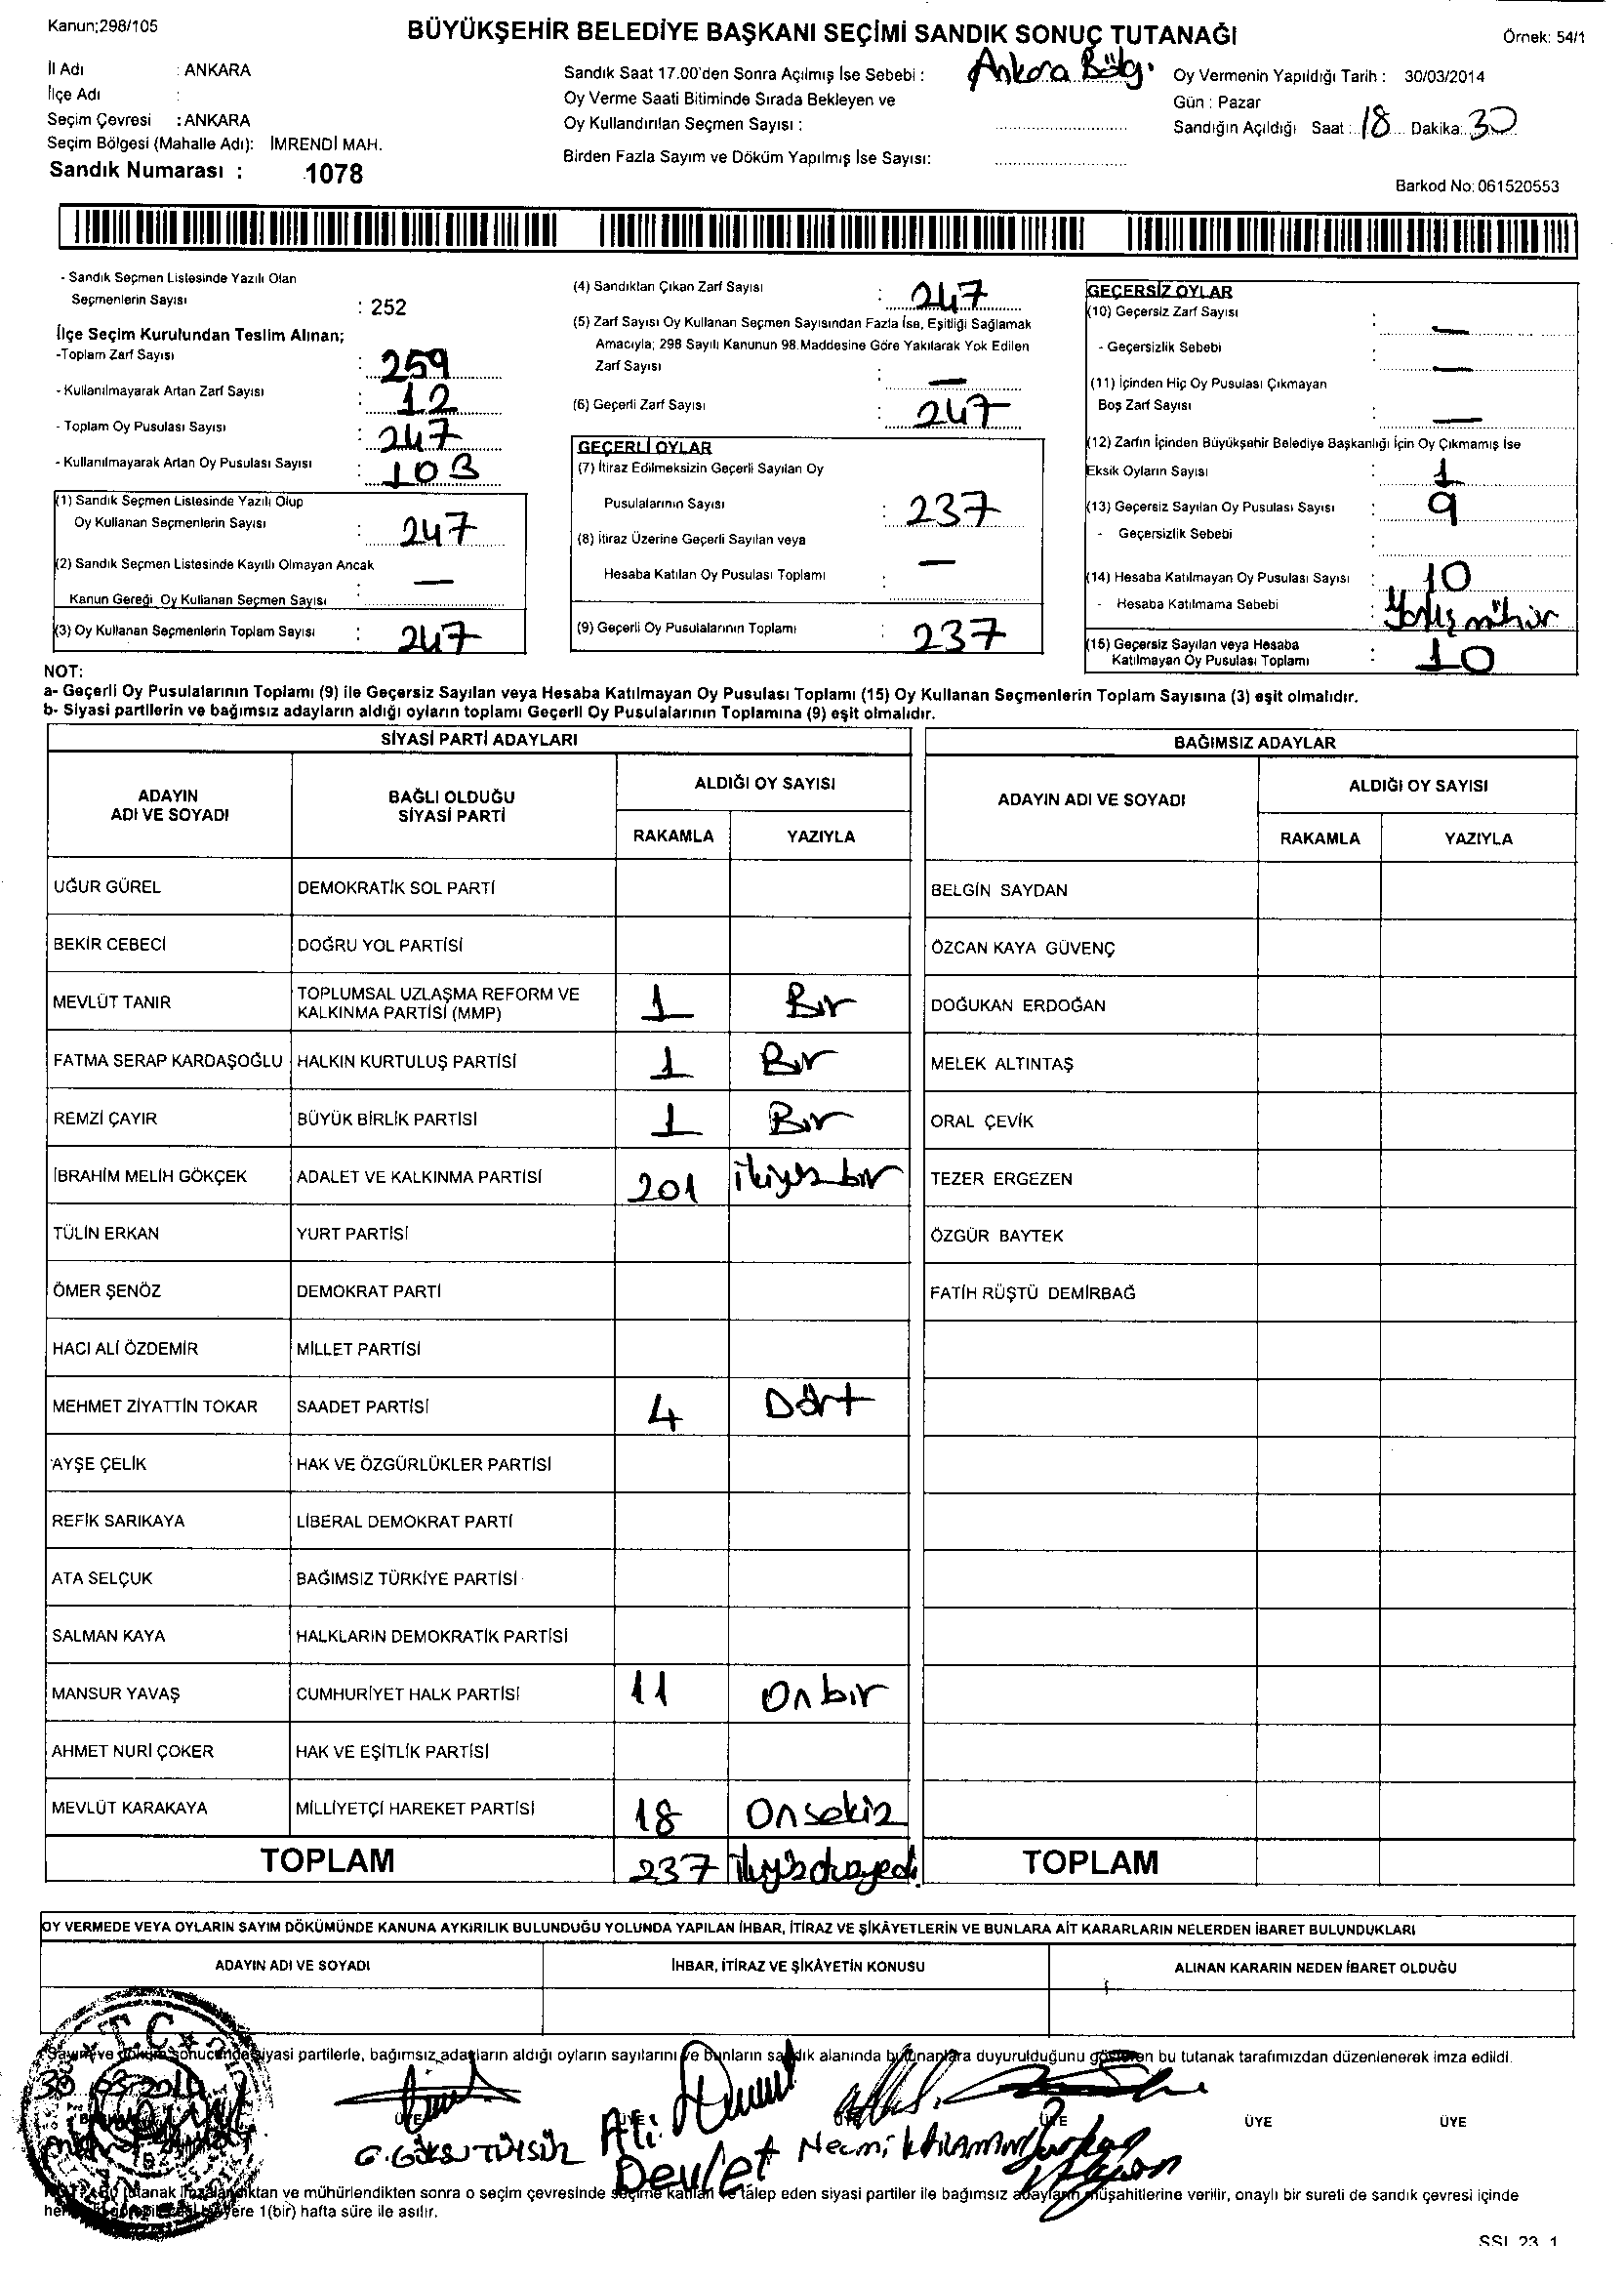 Kanun;298/105
BÜYÜKŞEHİR BELEDİYE BAŞKANI SEÇİMİ SANDIK SONUÇ TUTANAĞI
Örnek: 54/1
İl Adı : ANKARA
İlçe Adı :
Seçim Çevresi : ANKARA
Seçim Bölgesi (Mahalle Adı): İMRENDİ MAH.
Sandık Numarası : 1078
Sandık Saat 17.00'den Sonra Açılmış İse Sebebi : Ankara Bölg.
Oy Verme Saati Bitiminde Sırada Bekleyen ve
Oy Kullandırılan Seçmen Sayısı :
Birden Fazla Sayım ve Döküm Yapılmış İse Sayısı:
Oy Vermenin Yapıldığı Tarih : 30/03/2014
Gün : Pazar
Sandığın Açıldığı Saat : 18 Dakika: 30
Barkod No: 061520553
- Sandık Seçmen Listesinde Yazılı Olan
Seçmenlerin Sayısı : 252
İlçe Seçim Kurulundan Teslim Alınan;
-Toplam Zarf Sayısı : 259
- Kullanılmayarak Artan Zarf Sayısı : 12
- Toplam Oy Pusulası Sayısı : 247
- Kullanılmayarak Artan Oy Pusulası Sayısı : 103
(1) Sandık Seçmen Listesinde Yazılı Olup
Oy Kullanan Seçmenlerin Sayısı : 247
(2) Sandık Seçmen Listesinde Kayıtlı Olmayan Ancak
Kanun Gereği Oy Kullanan Seçmen Sayısı : —
(3) Oy Kullanan Seçmenlerin Toplam Sayısı : 247
(4) Sandıktan Çıkan Zarf Sayısı : 247
(5) Zarf Sayısı Oy Kullanan Seçmen Sayısından Fazla İse, Eşitliği Sağlamak
Amacıyla; 298 Sayılı Kanunun 98.Maddesine Göre Yakılarak Yok Edilen
Zarf Sayısı : —
(6) Geçerli Zarf Sayısı : 247
GEÇERLİ OYLAR
(7) İtiraz Edilmeksizin Geçerli Sayılan Oy
Pusulalarının Sayısı : 237
(8) İtiraz Üzerine Geçerli Sayılan veya
Hesaba Katılan Oy Pusulası Toplamı : —
(9) Geçerli Oy Pusulalarının Toplamı : 237
GEÇERSİZ OYLAR
(10) Geçersiz Zarf Sayısı : —
- Geçersizlik Sebebi : —
(11) İçinden Hiç Oy Pusulası Çıkmayan
Boş Zarf Sayısı : —
(12) Zarfın İçinden Büyükşehir Belediye Başkanlığı İçin Oy Çıkmamış İse
Eksik Oyların Sayısı : 1
(13) Geçersiz Sayılan Oy Pusulası Sayısı : 9
- Geçersizlik Sebebi :
(14) Hesaba Katılmayan Oy Pusulası Sayısı : 10
- Hesaba Katılmama Sebebi : Yanlış mühür
(15) Geçersiz Sayılan veya Hesaba
Katılmayan Oy Pusulası Toplamı : 10
NOT:
a- Geçerli Oy Pusulalarının Toplamı (9) ile Geçersiz Sayılan veya Hesaba Katılmayan Oy Pusulası Toplamı (15) Oy Kullanan Seçmenlerin Toplam Sayısına (3) eşit olmalıdır.
b- Siyasi partilerin ve bağımsız adayların aldığı oyların toplamı Geçerli Oy Pusulalarının Toplamına (9) eşit olmalıdır.
SİYASİ PARTİ ADAYLARI
ADAYIN ADI VE SOYADI
BAĞLI OLDUĞU SİYASİ PARTİ
ALDIĞI OY SAYISI
RAKAMLA YAZIYLA
UĞUR GÜREL DEMOKRATİK SOL PARTİ
BEKİR CEBECİ DOĞRU YOL PARTİSİ
MEVLÜT TANIR TOPLUMSAL UZLAŞMA REFORM VE KALKINMA PARTİSİ (MMP) 1 Bir
FATMA SERAP KARDAŞOĞLU HALKIN KURTULUŞ PARTİSİ 1 Bir
REMZİ ÇAYIR BÜYÜK BİRLİK PARTİSİ 1 Bir
İBRAHİM MELİH GÖKÇEK ADALET VE KALKINMA PARTİSİ 201 ikiyüz bir
TÜLİN ERKAN YURT PARTİSİ
ÖMER ŞENÖZ DEMOKRAT PARTİ
HACI ALİ ÖZDEMİR MİLLET PARTİSİ
MEHMET ZİYATTİN TOKAR SAADET PARTİSİ 4 Dört
AYŞE ÇELİK HAK VE ÖZGÜRLÜKLER PARTİSİ
REFİK SARIKAYA LİBERAL DEMOKRAT PARTİ
ATA SELÇUK BAĞIMSIZ TÜRKİYE PARTİSİ
SALMAN KAYA HALKLARIN DEMOKRATİK PARTİSİ
MANSUR YAVAŞ CUMHURİYET HALK PARTİSİ 11 Onbir
AHMET NURİ ÇOKER HAK VE EŞİTLİK PARTİSİ
MEVLÜT KARAKAYA MİLLİYETÇİ HAREKET PARTİSİ 18 Onsekiz
TOPLAM 237
BAĞIMSIZ ADAYLAR
ADAYIN ADI VE SOYADI
ALDIĞI OY SAYISI
RAKAMLA YAZIYLA
BELGİN SAYDAN
ÖZCAN KAYA GÜVENÇ
DOĞUKAN ERDOĞAN
MELEK ALTINTAŞ
ORAL ÇEVİK
TEZER ERGEZEN
ÖZGÜR BAYTEK
FATİH RÜŞTÜ DEMİRBAĞ
TOPLAM
OY VERMEDE VEYA OYLARIN SAYIM DÖKÜMÜNDE KANUNA AYKIRILIK BULUNDUĞU YOLUNDA YAPILAN İHBAR, İTİRAZ VE ŞİKÂYETLERİN VE BUNLARA AİT KARARLARIN NELERDEN İBARET BULUNDUKLARI
ADAYIN ADI VE SOYADI İHBAR, İTİRAZ VE ŞİKÂYETİN KONUSU ALINAN KARARIN NEDEN İBARET OLDUĞU
T.C.
Sayım ve döküm sonucunda siyasi partilerle, bağımsız adayların aldığı oyların sayılarını ve bunların sandık alanında bulunanlara duyurulduğunu gösteren bu tutanak tarafımızdan düzenlenerek imza edildi.
30 03 2014
ÜYE ÜYE ÜYE ÜYE
Ali Devlet Necmi
tutanak imzalandıktan ve mühürlendikten sonra o seçim çevresinde seçime katılan ve talep eden siyasi partiler ile bağımsız adayların müşahitlerine verilir, onaylı bir sureti de sandık çevresi içinde
yere 1(bir) hafta süre ile asılır.